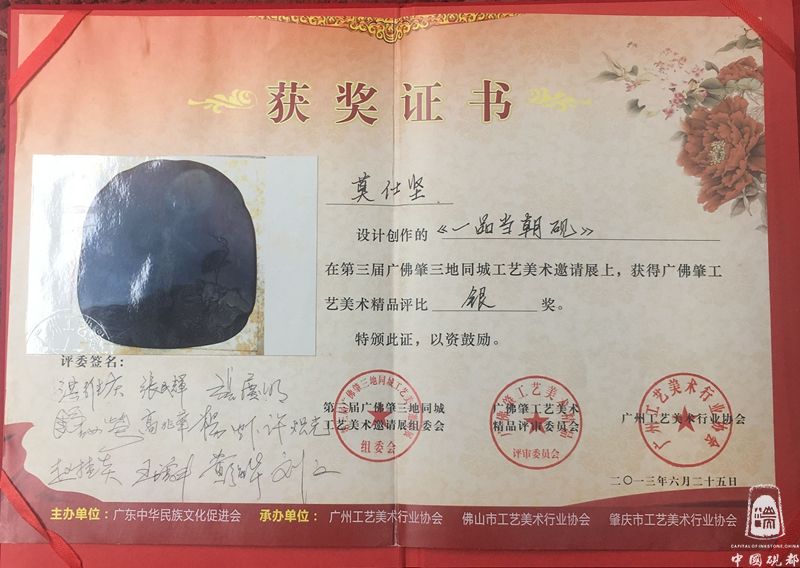 获奖证书
莫仕坚
设计创作的《一品当朝砚》
在第三届广佛肇三地同城工艺美术邀请展上，获得广佛肇工
艺美术精品评比 银 奖。
特颁此证，以资鼓励。
评委签名：
第三届广佛肇三地同城
工艺美术邀请展组委会
组委会
广佛肇工艺美术
精品评审委员会
评审委员会
广州工艺美术行业协会
广州工艺美术行业协会
二〇一三年六月二十五日
主办单位：广东中华民族文化促进会 承办单位：广州工艺美术行业协会 佛山市工艺美术行业协会 肇庆市工艺美术行业协会
端
CAPITAL OF INKSTONE,CHINA
中國硯都